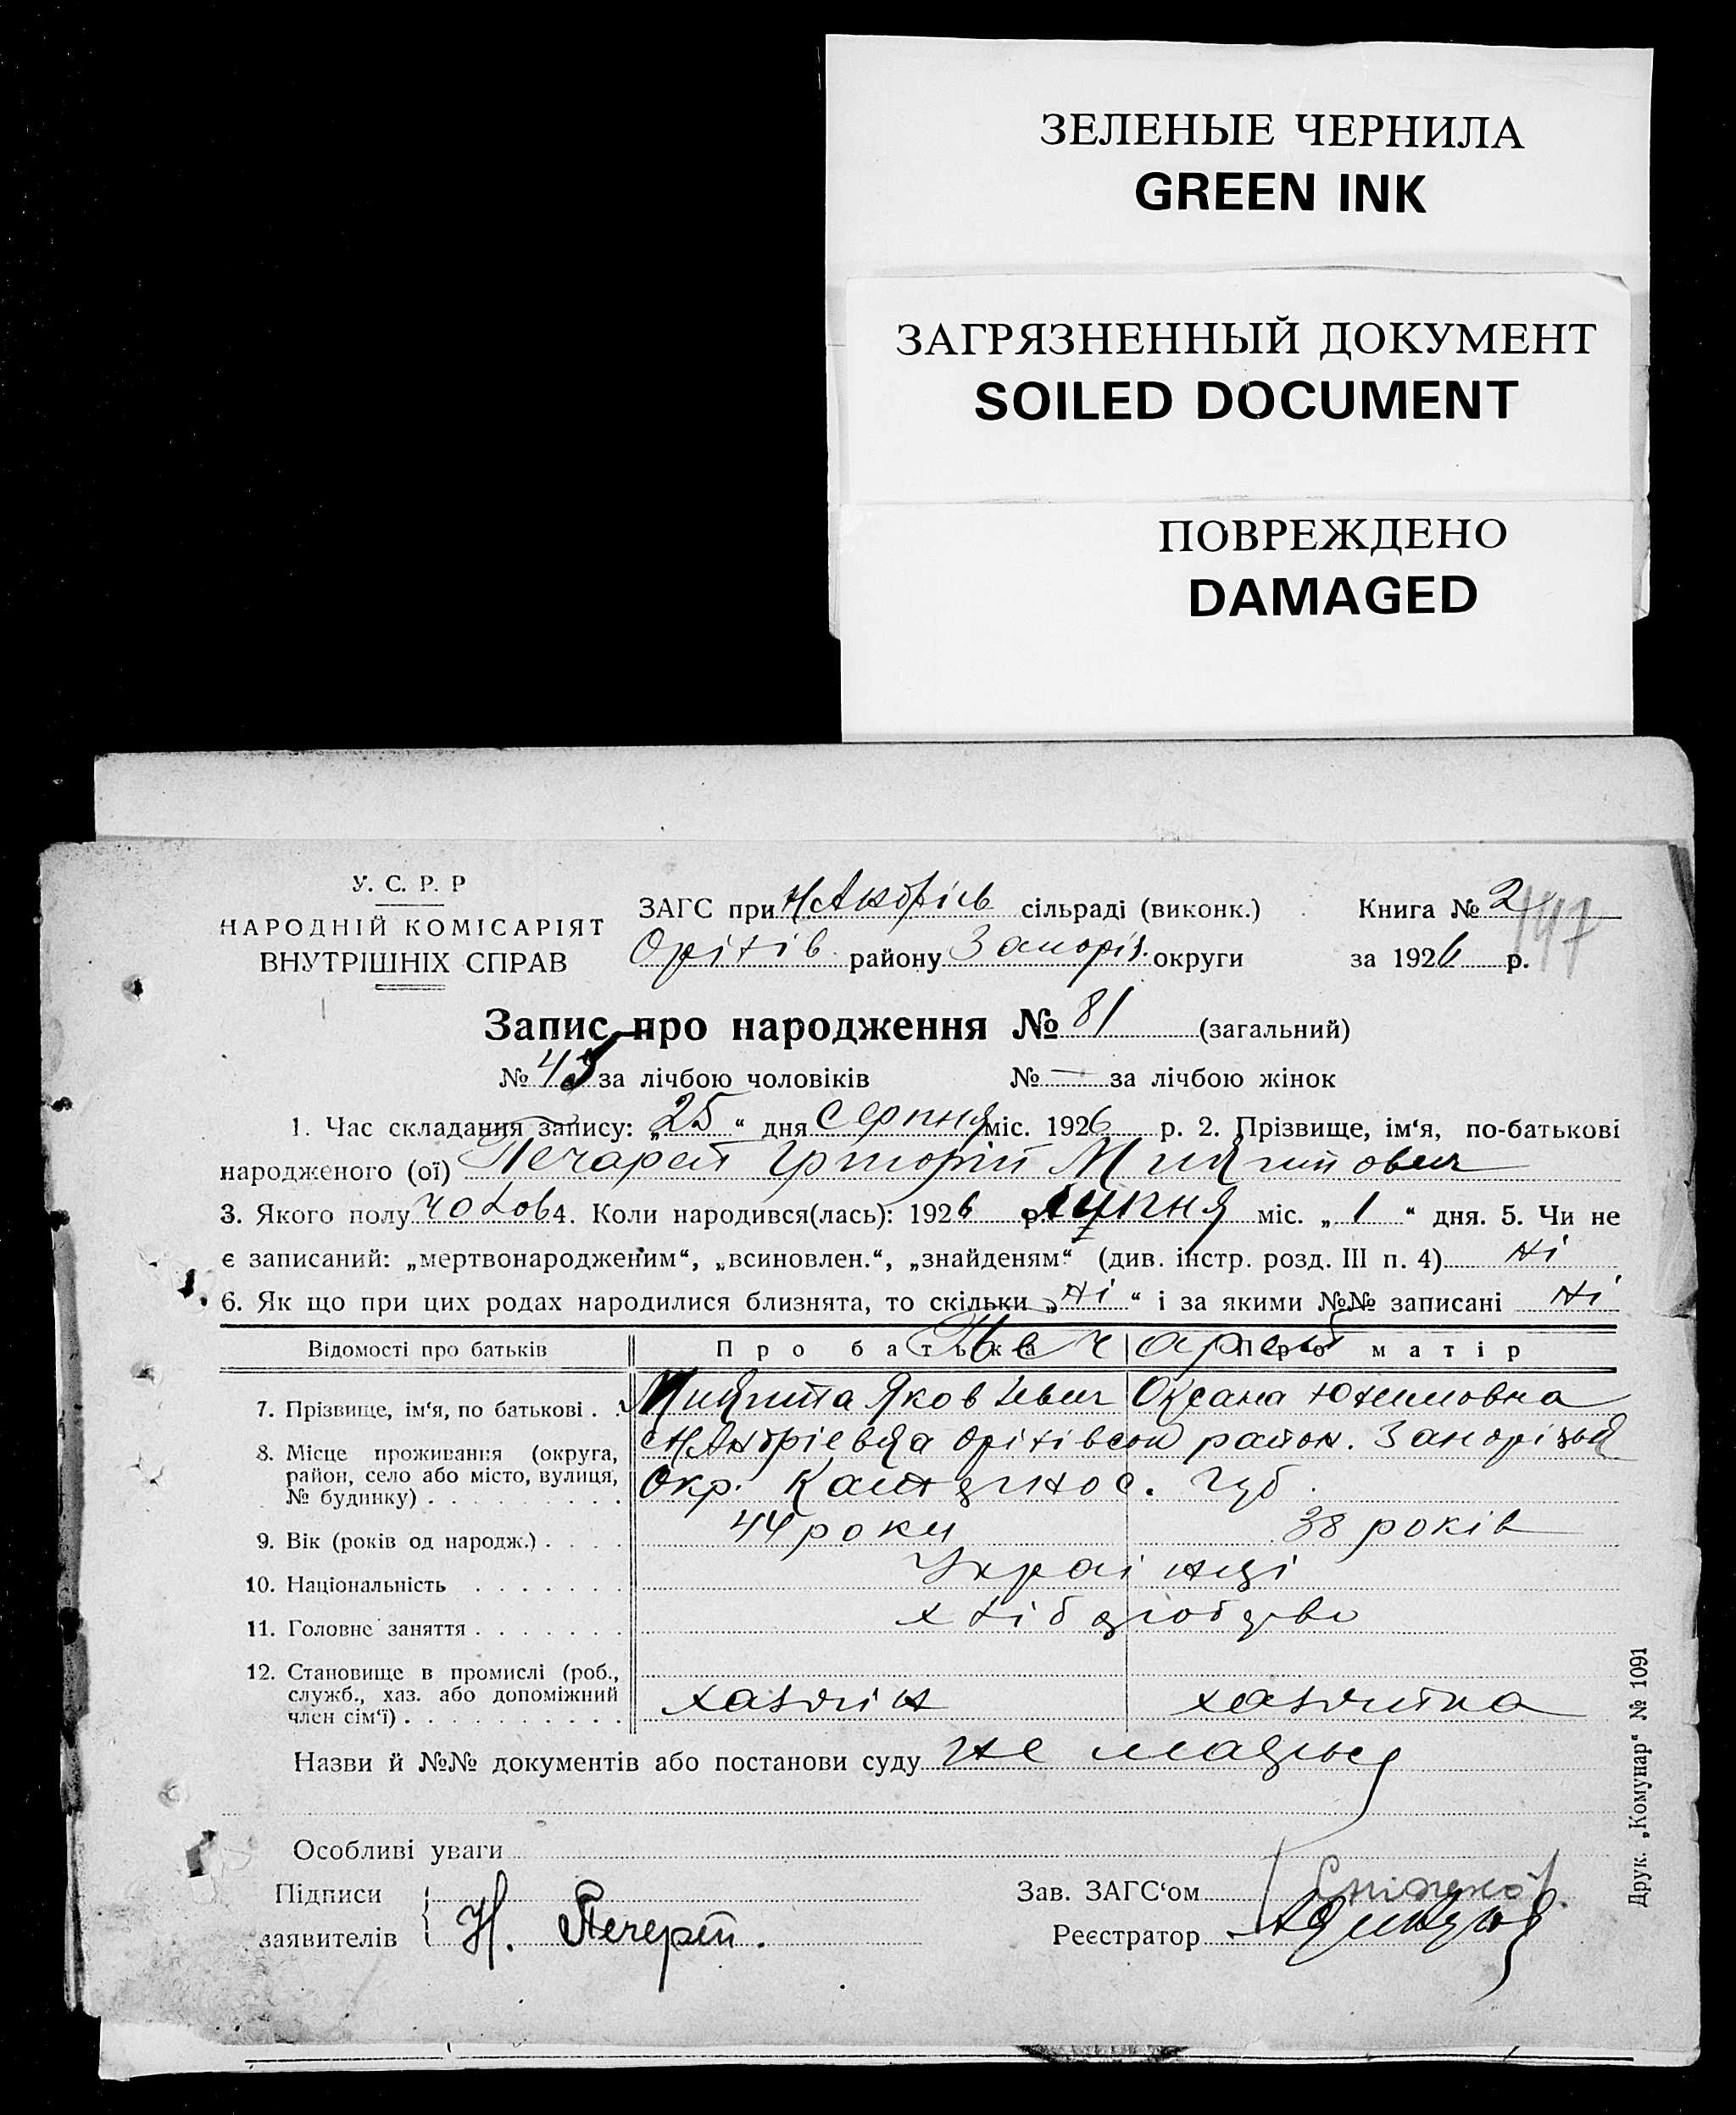 ЗЕЛЕНЫЕ ЧЕРНИЛА
GREEN INK
ЗАГРЯЗНЕННЫЙ ДОКУМЕНТ
SOILED DOCUMENT
ПОВРЕЖДЕНО
DAMAGED
У. С. Р. Р
НАРОДНІЙ КОМІСАРІЯТ
ВНУТРІШНІХ СПРАВ
ЗАГС при Н Андрїів сільраді (виконк.) Книга № 2
147
Оріхів району Запоріз. округи за 1926 р.
Запис про народження № 81 (загальний)
№ 45 за лічбою чоловіків № — за лічбою жінок
1. Час складання запису: „25“ дня Серпня міс. 1926 р. 2. Прізвище, ім‘я, по-батькові
народженого (ої) Печарей Григорій Микитович
3. Якого полу чолов. 4. Коли народився(лась): 1926 р. липня міс. „1“ дня. 5. Чи не
є записаний: „мертвонародженим“, „всиновлен.“, „знайденям“ (див. інстр. розд. III п. 4) ні
6. Як що при цих родах народилися близнята, то скільки „ні“ і за якими №№ записані ні
Відомості про батьків Про батька Про матір
Печарей
7. Прізвище, ім‘я, по батькові . . Микита Яковлевич Оксана Юхимовна
8. Місце проживання (округа, район, село або місто, вулиця, № будинку) . . . . . . . . . с Н Андрієвка Оріхівськ район. Запорізької
Окр. Катеринос. Губ.
9. Вік (років од народж.) . . . . 44 роки 38 років
10. Національність . . . . . . . Українці
11. Головне заняття . . . . . . . хліборобство
12. Становище в промислі (роб., служб., хаз. або допоміжний член сім‘ї) . . . . . . . . . . хазяїн хазяйка
Назви й №№ документів або постанови суду не мається
Особливі уваги
Підписи
заявителів
Н. Печерей.
Зав. ЗАГС‘ом
Реєстратор
Друк. „Комунар“ № 1091